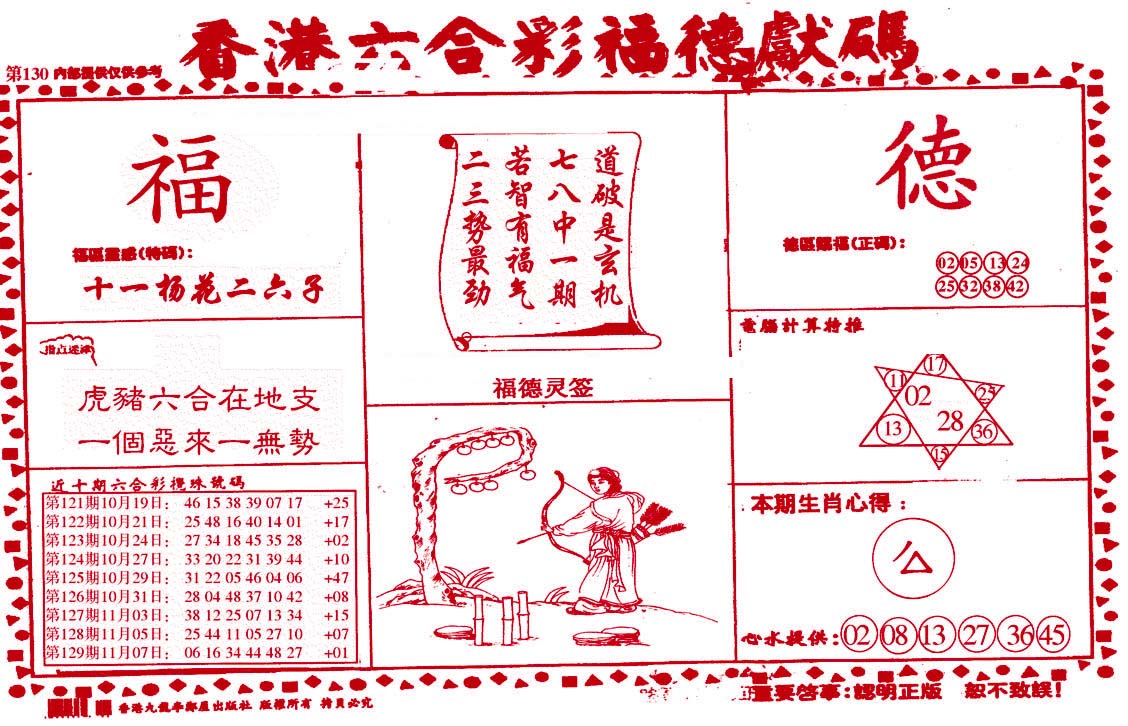 香港六合彩福德獻碼
第130 内部提供仅供参考
福
福區靈感(特碼):
十一杨花二六子
指点迷津
虎豬六合在地支
一個惡來一無勢
近十期六合彩攪珠號碼
第121期10月19日: 46 15 38 39 07 17 +25
第122期10月21日: 25 48 16 40 14 01 +17
第123期10月24日: 27 34 18 45 35 28 +02
第124期10月27日: 33 20 22 31 39 44 +10
第125期10月29日: 31 22 05 46 04 06 +47
第126期10月31日: 28 04 48 37 10 42 +08
第127期11月03日: 38 12 25 07 13 34 +15
第128期11月05日: 25 44 11 05 27 10 +07
第129期11月07日: 06 16 34 44 48 27 +01
道破是玄机
七八中一期
若智有福气
二三势最劲
福德灵签
德
德區賜福(正碼):
02 05 13 24
25 32 38 42
電腦計算特推
17
11 02 25
13 28 36
15
本期生肖心得:
心水提供: 02 08 13 27 36 45
重要啓事:認明正版 恕不致誤!
香港九龍 出版社 版權所有 拷貝必究